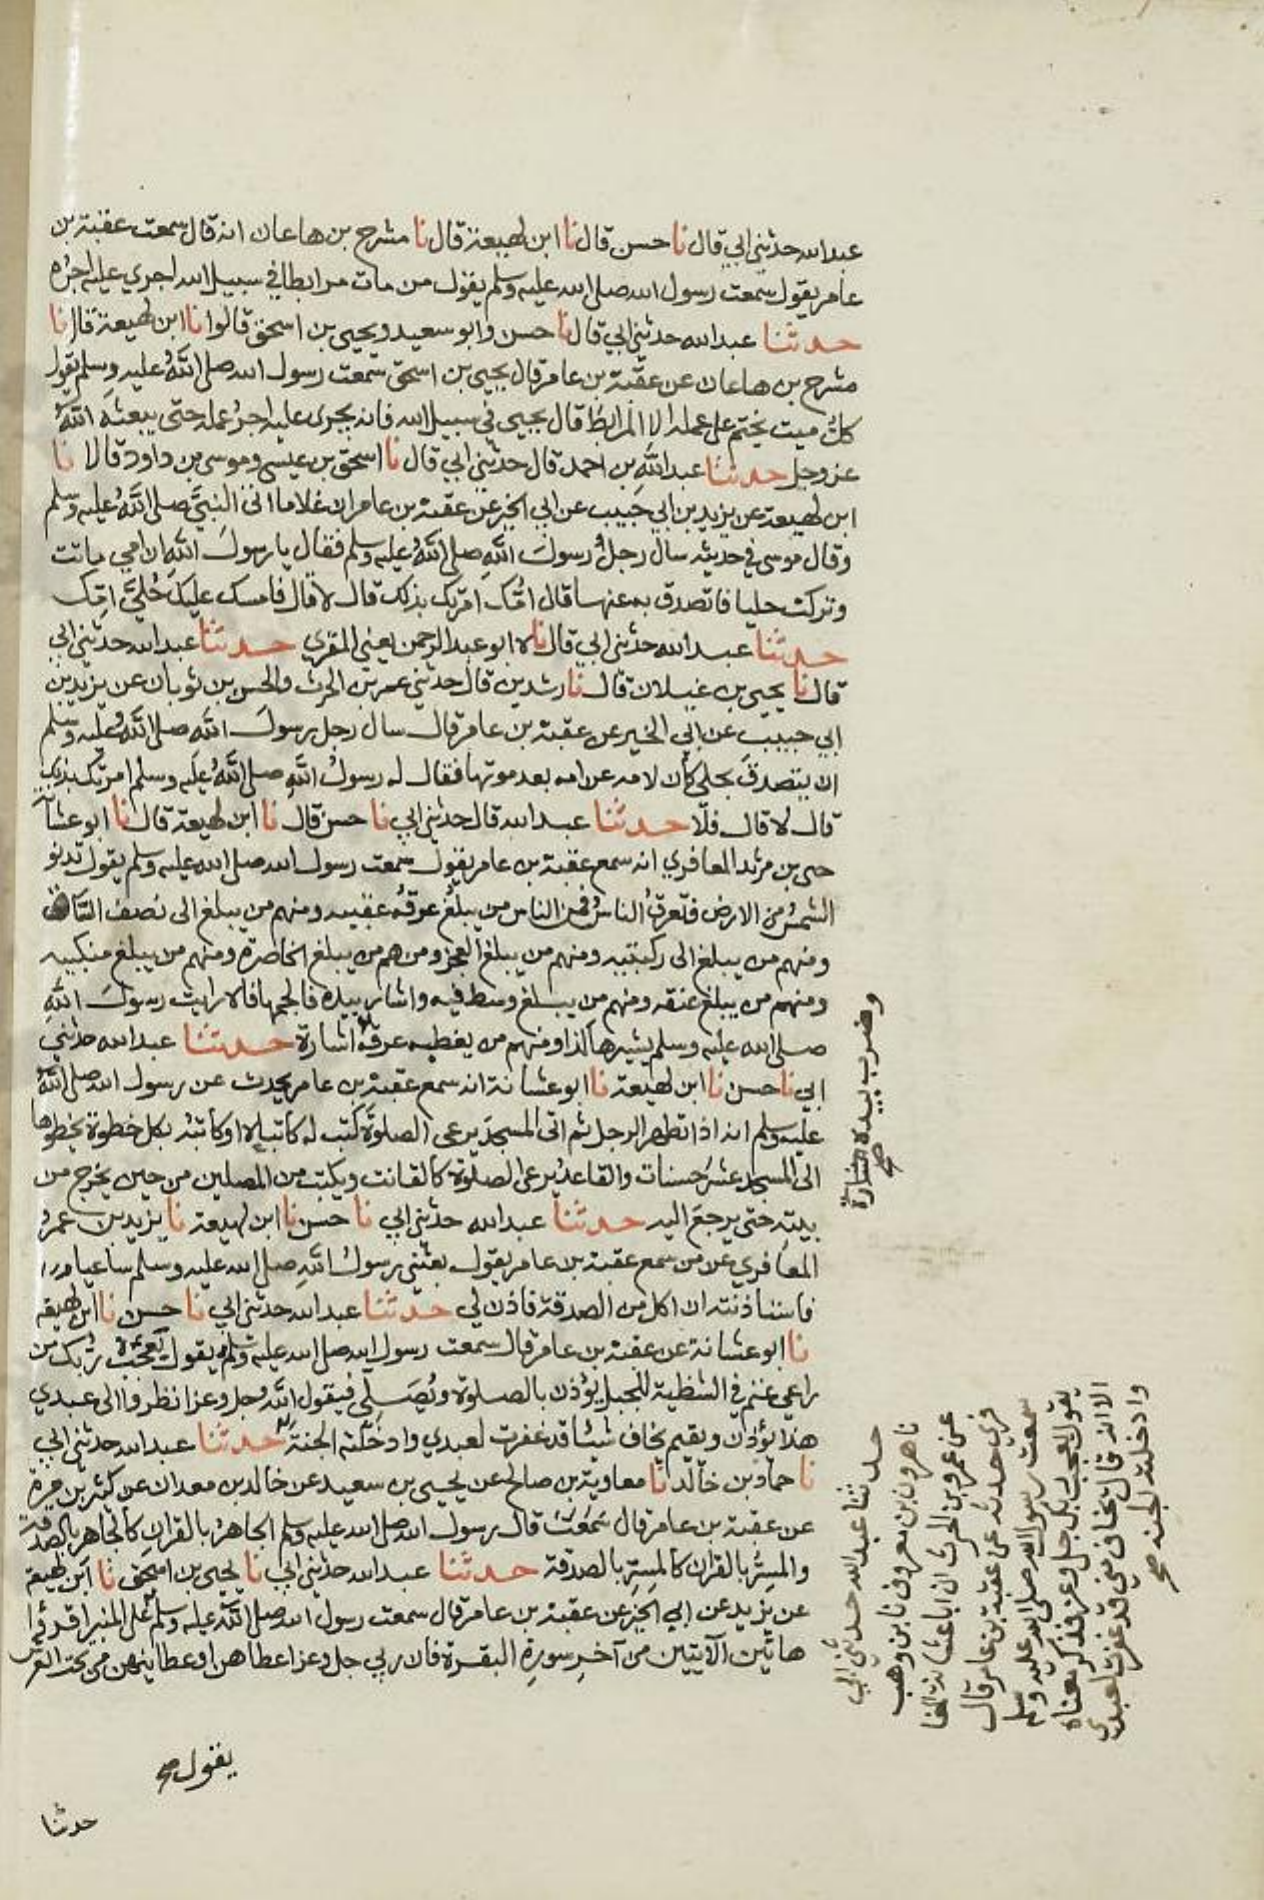 عبدالله حدثني ابي قال نا حسن قال نا ابن لهيعة قال نا مشرح بن هاعان انه قال سمعت عقبة بن
عامر يقول سمعت رسول الله صلى الله عليه وسلم يقول من مات مرابطا في سبيل الله اجري عليه اجره
حدثنا عبدالله حدثني ابي قال نا حسن وابو سعيد ويحيى بن اسحق قالوا نا ابن لهيعة قال نا
مشرح بن هاعان عن عقبة بن عامر قال يحيى بن اسحق سمعت رسول الله صلى اللهُ عليه وسلم يقول
كلُّ ميت يختم على عمله الا المرابطُ قال يحيى في سبيل الله فانه يجرى عليه اجرُ عمله حتى يبعثه اللهُ
عزوجل حدثنا عبداللهِ بن احمد قال حدثني ابي قال نا اسحق بن عيسى وموسى بن داود قالا نا
ابن لهيعة عن يزيد بن ابي حبيب عن ابي الخير عن عقبة بن عامر ان غلاما اتى النبيَّ صلى اللهُ عليه وسلم
وقال موسى في حديثه سال رجلٌ رسولَ اللهِ صلى اللهُ عليه وسلم فقال يا رسولَ اللهِ ان امي ماتت
وتركت حليا فاتصدق به عنها قال امُّك امرتك بذلك قال لا قال فامسك عليكَ حُليَّ امِّك
حدثنا عبدالله حدثني ابي قال نا ابو عبدالرحمن يعني المقري حدثنا عبدالله حدثني ابي
قال نا يحيى بن غيلان قال نا رشدين قال حدثني عمرو بن الحرث والحسن بن ثوبان عن يزيد بن
ابي حبيب عن ابي الخير عن عقبة بن عامر قال سال رجل رسولَ اللهِ صلى اللهُ عليه وسلم
ان يتصدقَ بحلي كان لامه عن امه بعد موتها فقال له رسولُ اللهِ صلى اللهُ عليه وسلم امرتك بذلك
قال لا قال فلا حدثنا عبدالله قال حدثني ابي نا حسن قال نا ابن لهيعة قال نا ابو عشانة
حي بن مرثد المعافري انه سمع عقبة بن عامر يقول سمعت رسول الله صلى الله عليه وسلم يقول تدنو
الشمسُ من الارض فتعرقُ الناسُ فمن الناس من يبلُغُ عرقُه عقبيه ومنهم من يبلغ الى نصف الساق
ومنهم من يبلغ الى ركبتيه ومنهم من يبلغ العجز ومنهم من يبلغ الخاصرة ومنهم من يبلغ منكبيه
ومنهم من يبلغ عنقه ومنهم من يبلغ وسط فيه واشار بيده فالجمها فاه رايت رسولَ اللهِ
صلى الله عليه وسلم يشير هاكذا ومنهم من يغطيه عرقُه اشارة حدثنا عبدالله حدثني
ابي نا حسن نا ابن لهيعة نا ابو عشانة انه سمع عقبة بن عامر يحدث عن رسول الله صلى اللهُ
عليه وسلم انه اذا تطهر الرجل ثم اتى المسجدَ يرعى الصلوةَ كتب له كاتباه او كاتبُه بكل خطوة يخطوها
الى المسجد عشرَ حسنات والقاعدُ يرعى الصلوة كالقانت ويكتب من المصلين من حين يخرج من
بيته حتى يرجعَ اليه حدثنا عبدالله حدثني ابي نا حسن نا ابن لهيعة نا يزيد بن عمرو
المعافري عن من سمع عقبة بن عامر يقول بعثني رسولُ اللهِ صلى الله عليه وسلم ساعيا
فاستأذنته ان اكل من الصدقة فاذن لي حدثنا عبدالله حدثني ابي نا حسن نا ابن لهيعة
نا ابو عشانة عن عقبة بن عامر قال سمعت رسول الله صلى الله عليه وسلم يقول يعجبُ ربُّك من
راعي غنم في الشظية للجبل يؤذن بالصلوة ويُصَلِّي فيقول اللهُ جل وعز انظروا الى عبدي
هذا يؤذن ويقيم يخاف شيئا قد غفرت لعبدي وادخلته الجنة حدثنا عبدالله حدثني ابي
نا حماد بن خالد نا معاوية بن صالح عن يحيى بن سعيد عن خالد بن معدان عن كثير بن مرة
عن عقبة بن عامر قال سمعت قال رسول الله صلى الله عليه وسلم الجاهرُ بالقرانِ كالجاهر بالصدقة
والمسِرُّ بالقران كالمسِرِّ بالصدقة حدثنا عبدالله حدثني ابي نا يحيى بن اسحق نا ابن لهيعة
عن يزيد عن ابي الخير عن عقبة بن عامر قال سمعت رسول الله صلى الله عليه وسلم على المنبر اقرءوا
هاتين الآيتين من آخرِ سورةِ البقرة فان ربي جل وعز اعطاهن او عطانيهن من تحت العرش
يقول صح
حدثنا
وضرب بيده
اشارة صح
حدثنا عبدالله حدثني ابي
نا هرون بن معروف نا بن وهب
عن عمرو بن الحرث ان ابا عشانة المعا
فري حدثه عن عقبة بن عامر قال
سمعت رسول الله صلى الله عليه وسلم
يقول يعجب ربك جل وعز فذكر معناه
الا انه قال يخاف مني قد غفرت لعبدي
وادخلته الجنة صح